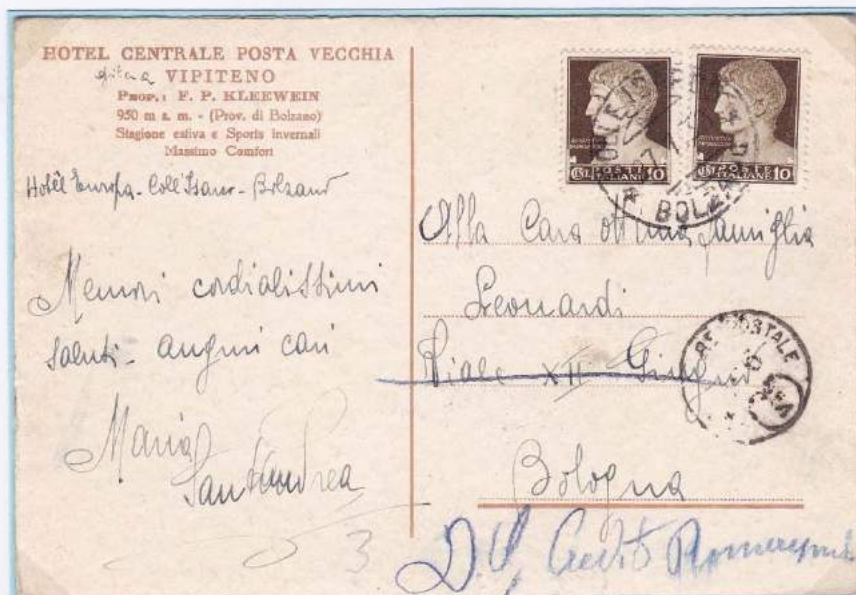 HOTEL CENTRALE POSTA VECCHIA
VIPITENO
PROP.: F. P. KLEEWEIN
950 m s. m. - (Prov. di Bolzano)
Stagione estiva e Sports invernali
Massimo Comfort
Hotel Europa - Coll'Isarco - Bolzano
Memori cordialissimi
saluti - auguri cari
Maria
Santandrea
3
POSTE
ITALIANE
CENT 10
POSTE
ITALIANE
10
BOLZANO
Alla Cara ottima famiglia
Leonardi
Viale XII Giugno
Bologna
POSTALE
Credito